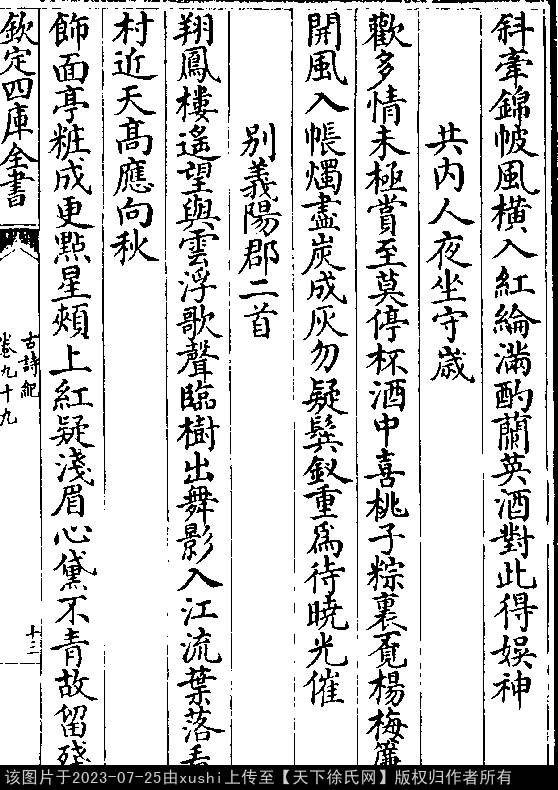 斜牽錦帔風橫入紅綸滿酌蘭英酒對此得娯神
共内人夜坐守歳
歡多情未極賞至莫停杯酒中喜桃子粽裏覔楊梅簾
開風入帳燭盡炭成灰勿疑鬂釵重為待曉光催
別義陽郡二首
翔鳳樓遙望與雲浮歌聲臨樹出舞影入江流葉落看
村近天髙應向秋
飾面亭粧成更點星頰上紅疑淺眉心黛不青故留殘
欽定四庫全書
古詩紀
卷九十九
十三
该图片于2023-07-25由xushi上传至【天下徐氏网】版权归作者所有